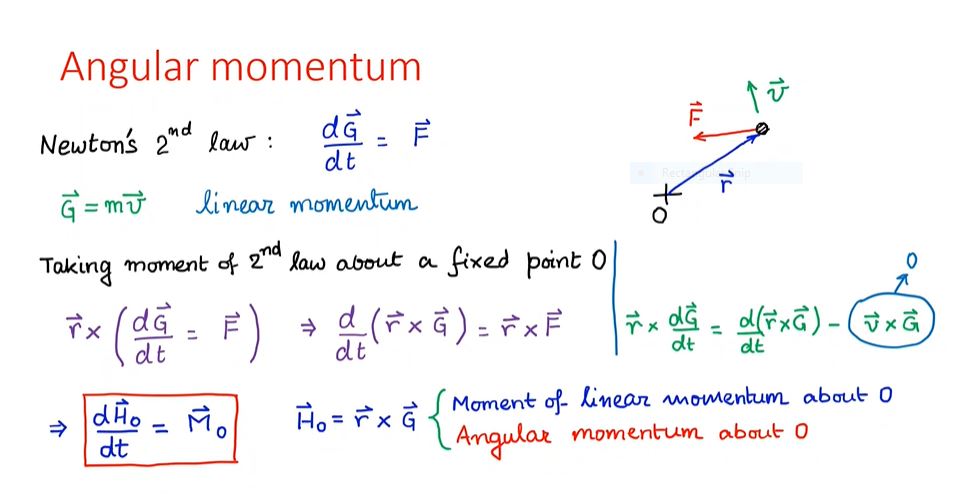 Angular momentum
Newton's 2nd law : dG⃗/dt = F⃗
G⃗ = mv⃗ linear momentum
F⃗
v⃗
r⃗
O
Taking moment of 2nd law about a fixed point O
r⃗ × (dG⃗/dt = F⃗) ⇒ d/dt (r⃗ × G⃗) = r⃗ × F⃗
r⃗ × dG⃗/dt = d(r⃗ × G⃗)/dt − v⃗ × G⃗ → 0
⇒ dH⃗₀/dt = M⃗₀
H⃗₀ = r⃗ × G⃗ { Moment of linear momentum about O
Angular momentum about O